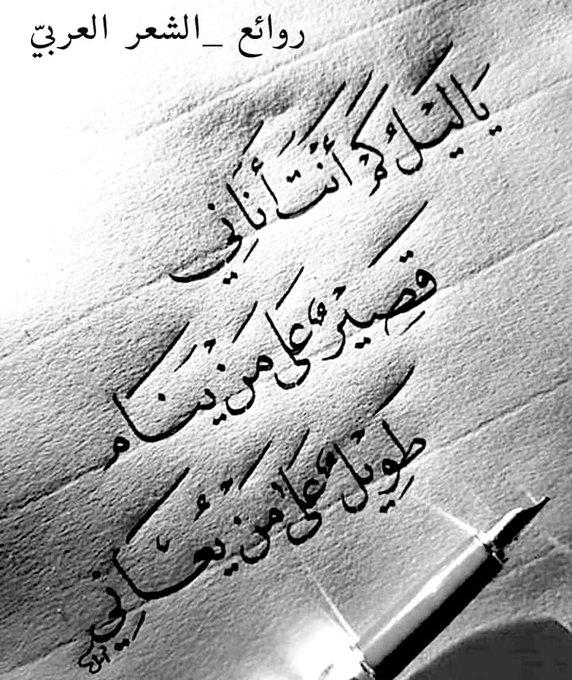 روائع _الشعر العربيّ
يَا لَيْلُ كَمْ أَنْتَ أَنَانِي
قَصِيْرٌ عَلَى مَنْ يَنَام
طَوِيْلٌ عَلَى مَنْ يُعَانِي